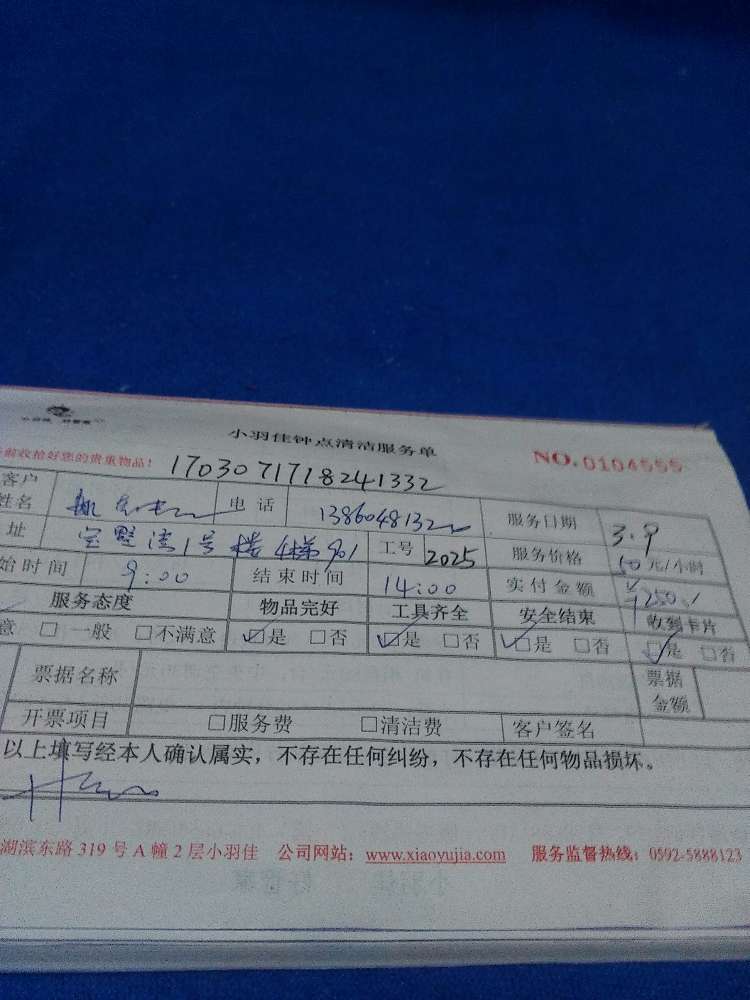 小羽佳钟点清洁服务单
前收拾好您的贵重物品！ 17030717182413​32 NO.0104555
客户姓名 电话 服务日期 3.9
址 1号楼4梯901 工号 2025 服务价格 50元/小时
始时间 9:00 结束时间 14:00 实付金额 ¥250
服务态度 物品完好 工具齐全 安全结束 收到卡片
意 □一般 □不满意 ☑是 □否 ☑是 □否 ☑是 □否 ☑是 □否
票据名称 票据金额
开票项目 □服务费 □清洁费 客户签名
以上填写经本人确认属实，不存在任何纠纷，不存在任何物品损坏。
湖滨东路 319 号 A 幢 2 层小羽佳 公司网站：www.xiaoyujia.com 服务监督热线：0592-5888123